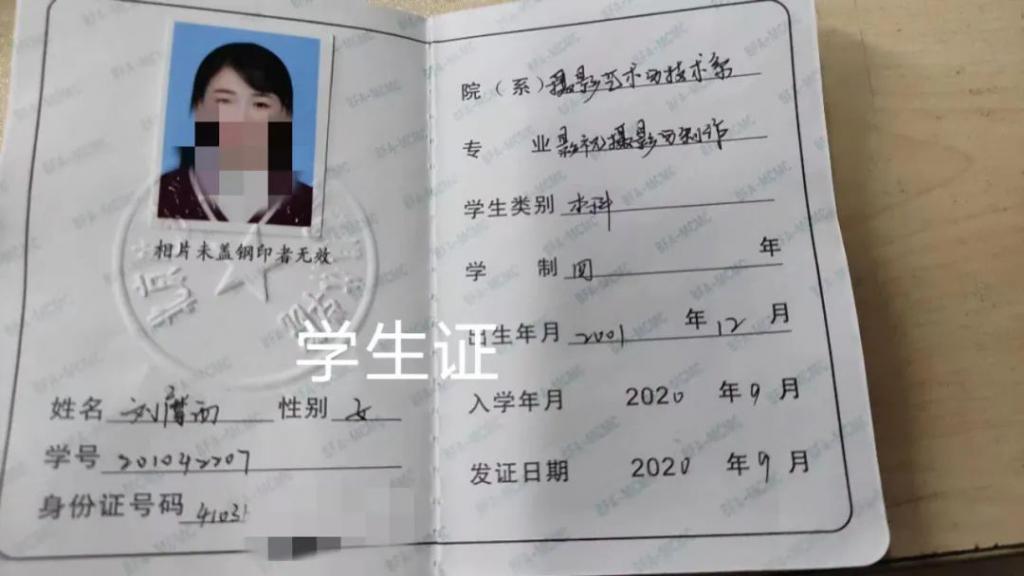 相片未盖钢印者无效
学生证
姓名 刘 西 性别 女
学号 201042207
身份证号码 4103
院（系）摄影艺术与技术系
专 业 影视摄影与制作
学生类别 本科
学 制 四 年
出生年月 2001 年 12 月
入学年月 2020 年 9 月
发证日期 2020 年 9 月
BFA-MCMC